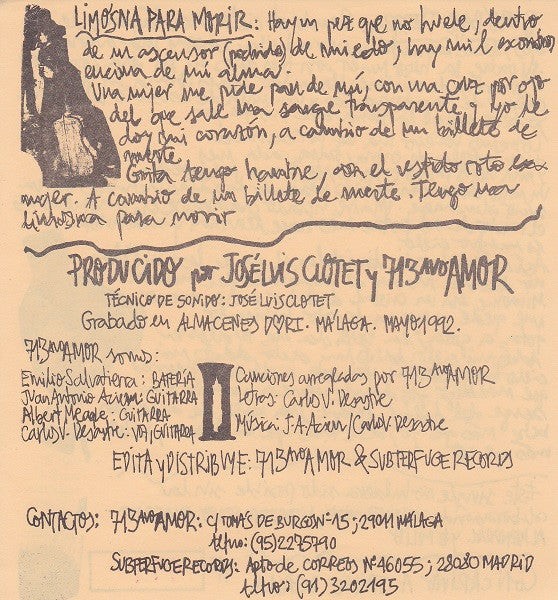 LIMOSNA PARA MORIR: Hay un pez que no huele, dentro
de un ascensor (podrido) de miedo, hay mil
encima de mi alma.
Una mujer me pide pan de mí, con una cruz por ojo
del que sale una sangre transparente y yo le
doy mi corazón, a cambio de un billete de
muerte.
Grita tengo hambre, con el vestido roto esa
mujer. A cambio de un billete de muerte. Tengo una
limosna para morir
PRODUCIDO por JOSÉ LUIS CLOTET y 713AVO AMOR
TÉCNICO DE SONIDO: JOSÉ LUIS CLOTET
Grabado en ALMACENES DORI. MÁLAGA. MAYO 1992.
713AVO AMOR somos:
Emilio Salvatiera: BATERÍA
Juan Antonio: GUITARRA
Albert: GUITARRA
Carlos V. Desastre: VOZ, GUITARRA
Canciones arregladas por 713AVO AMOR
Letras: Carlos V. Desastre
Música: J.A. / Carlos V. Desastre
EDITA y DISTRIBUYE: 713AVO AMOR & SUBTERFUGE RECORDS
CONTACTOS: 713AVO AMOR: C/ TOMÁS DE BURGOS Nº 15; 29011 MÁLAGA
tlfno: (95) 2275790
SUBTERFUGE RECORDS: Apto de CORREOS Nº 46055; 28080 MADRID
tlfno: (91) 3202195